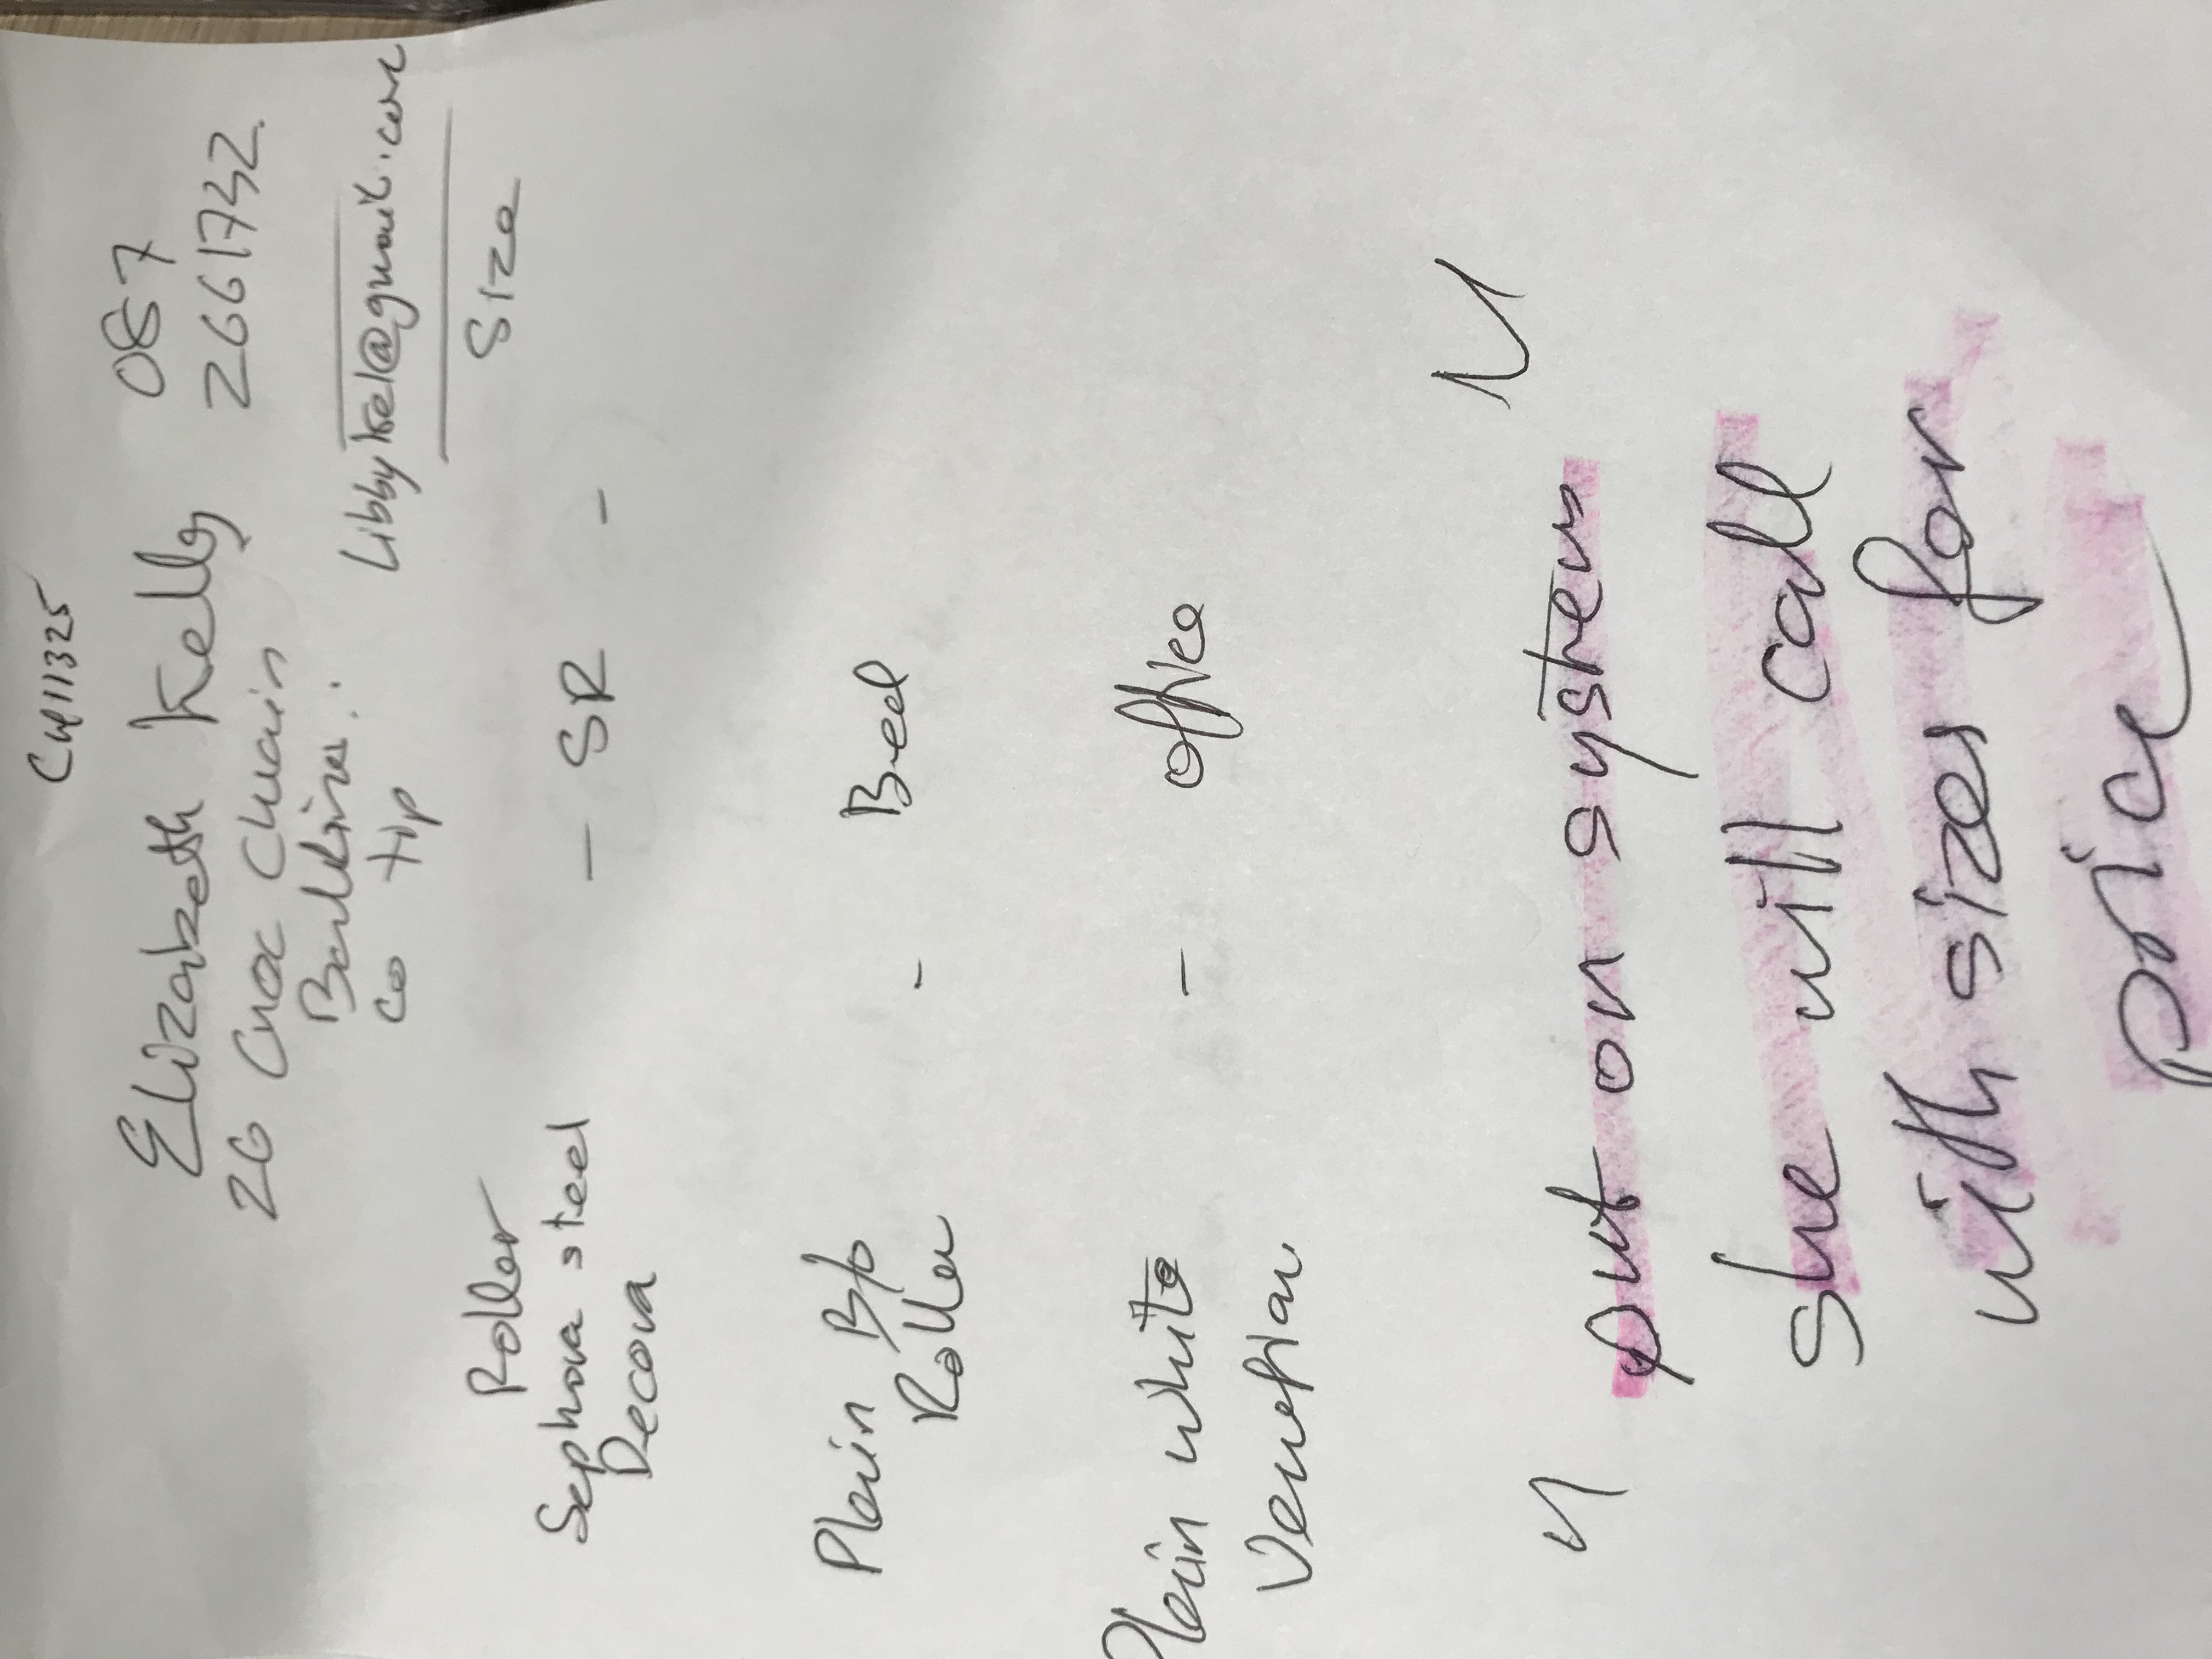 Elizabeth Kelly 087
26 Cnoc Cluain 2661732
Co Tip
Libbykel@gmail.com
Roller Size
Sephora steel - SR -
Decora
Plain B/o - Bed
Roller
Plain white - office
Venetian
" put on system "
she will call
with sizes for
price